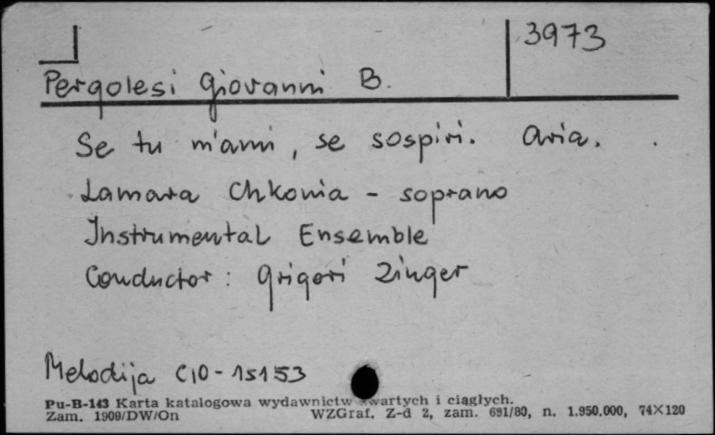 3973
Pergolesi Giovanni B.
Se tu m'ami, se sospiri. Aria.
Lamara Chkonia - soprano
Instrumental Ensemble
Conductor: Grigori Zinger
Melodija C10-15153
Pu-B-143 Karta katalogowa wydawnictw zwartych i ciągłych.
Zam. 1909/DW/On WZGraf. Z-d 2, zam. 691/80, n. 1.950.000, 74×120